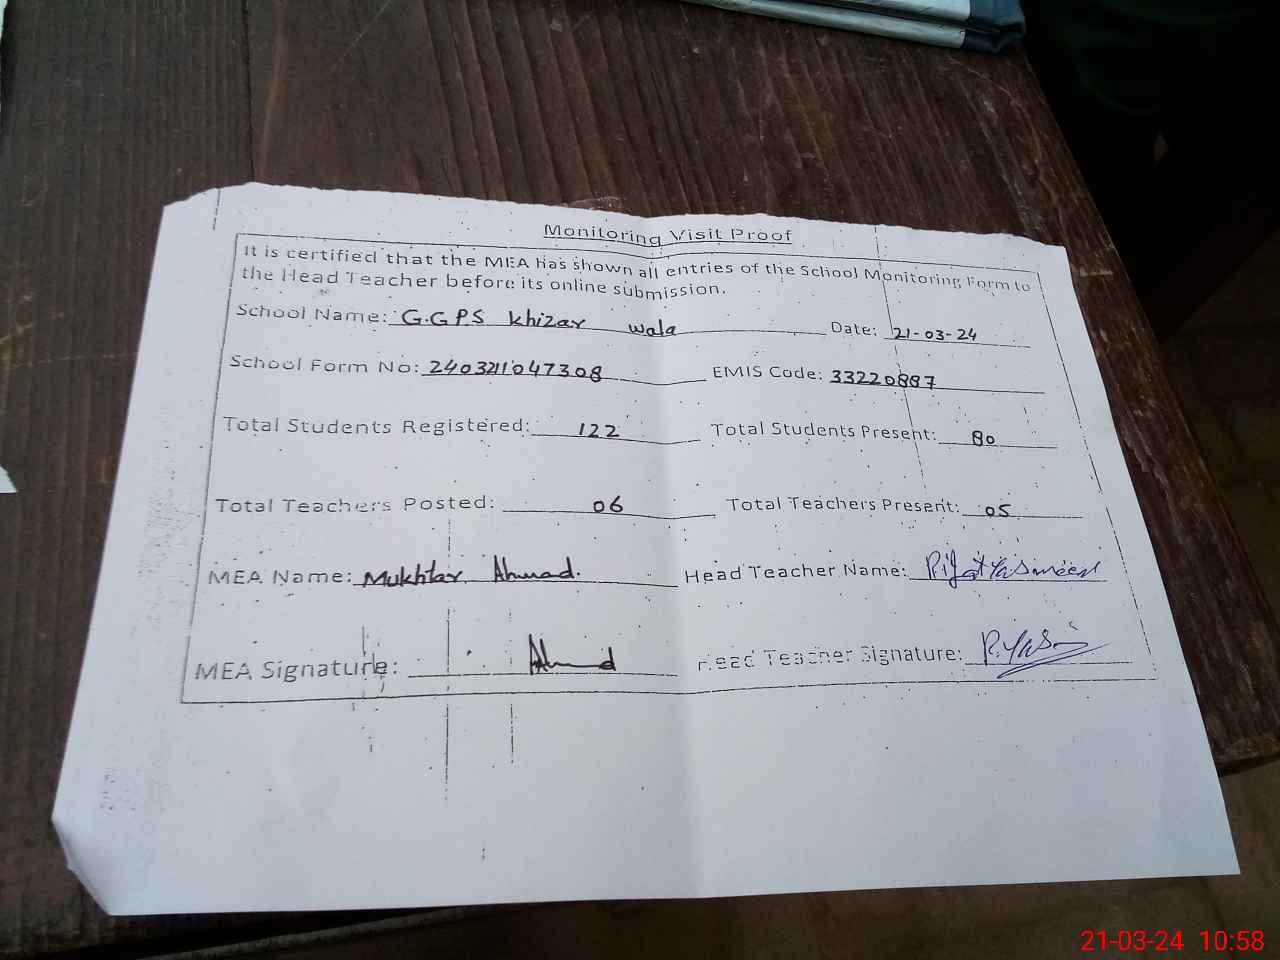 Monitoring Visit Proof
It is certified that the MEA has shown all entries of the School Monitoring Form to
the Head Teacher before its online submission.
School Name: G.GPS Khizar wala Date: 21-03-24
School Form No: 2403211047308 EMIS Code: 33220887
Total Students Registered: 122 Total Students Present: 80
Total Teachers Posted: 06 Total Teachers Present: 05
MEA Name: Mukhtar Ahmad. Head Teacher Name: Yasmeen
MEA Signature: Ahmad Head Teacher Signature: R.Yas
21-03-24 10:58